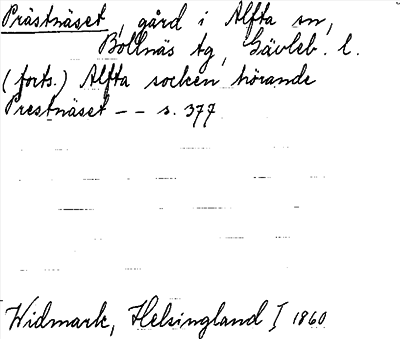 Prästnäset, gård i Alfta sn,
Bollnäs tg, Gävleb. l.
(forts.) Alfta socken hörande
Prestnäset – – s. 377
Widmark, Helsingland I 1860